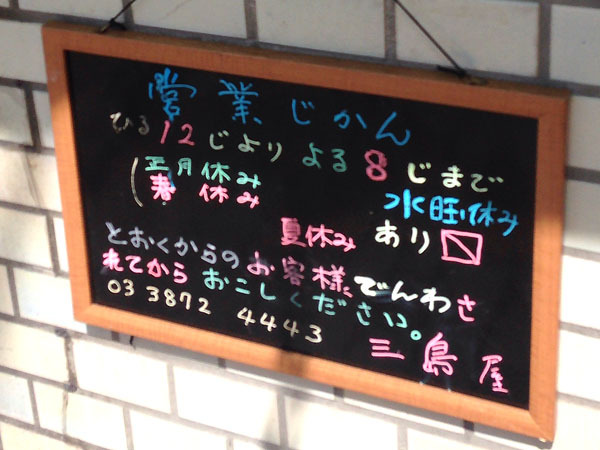 営業じかん
ひる12じより よる8じまで
(正月休み
春 休み
水旺休み
夏休み あり
とおくからのお客様、でんわさ
れてからおこしください。
03 3872 4443
三島屋